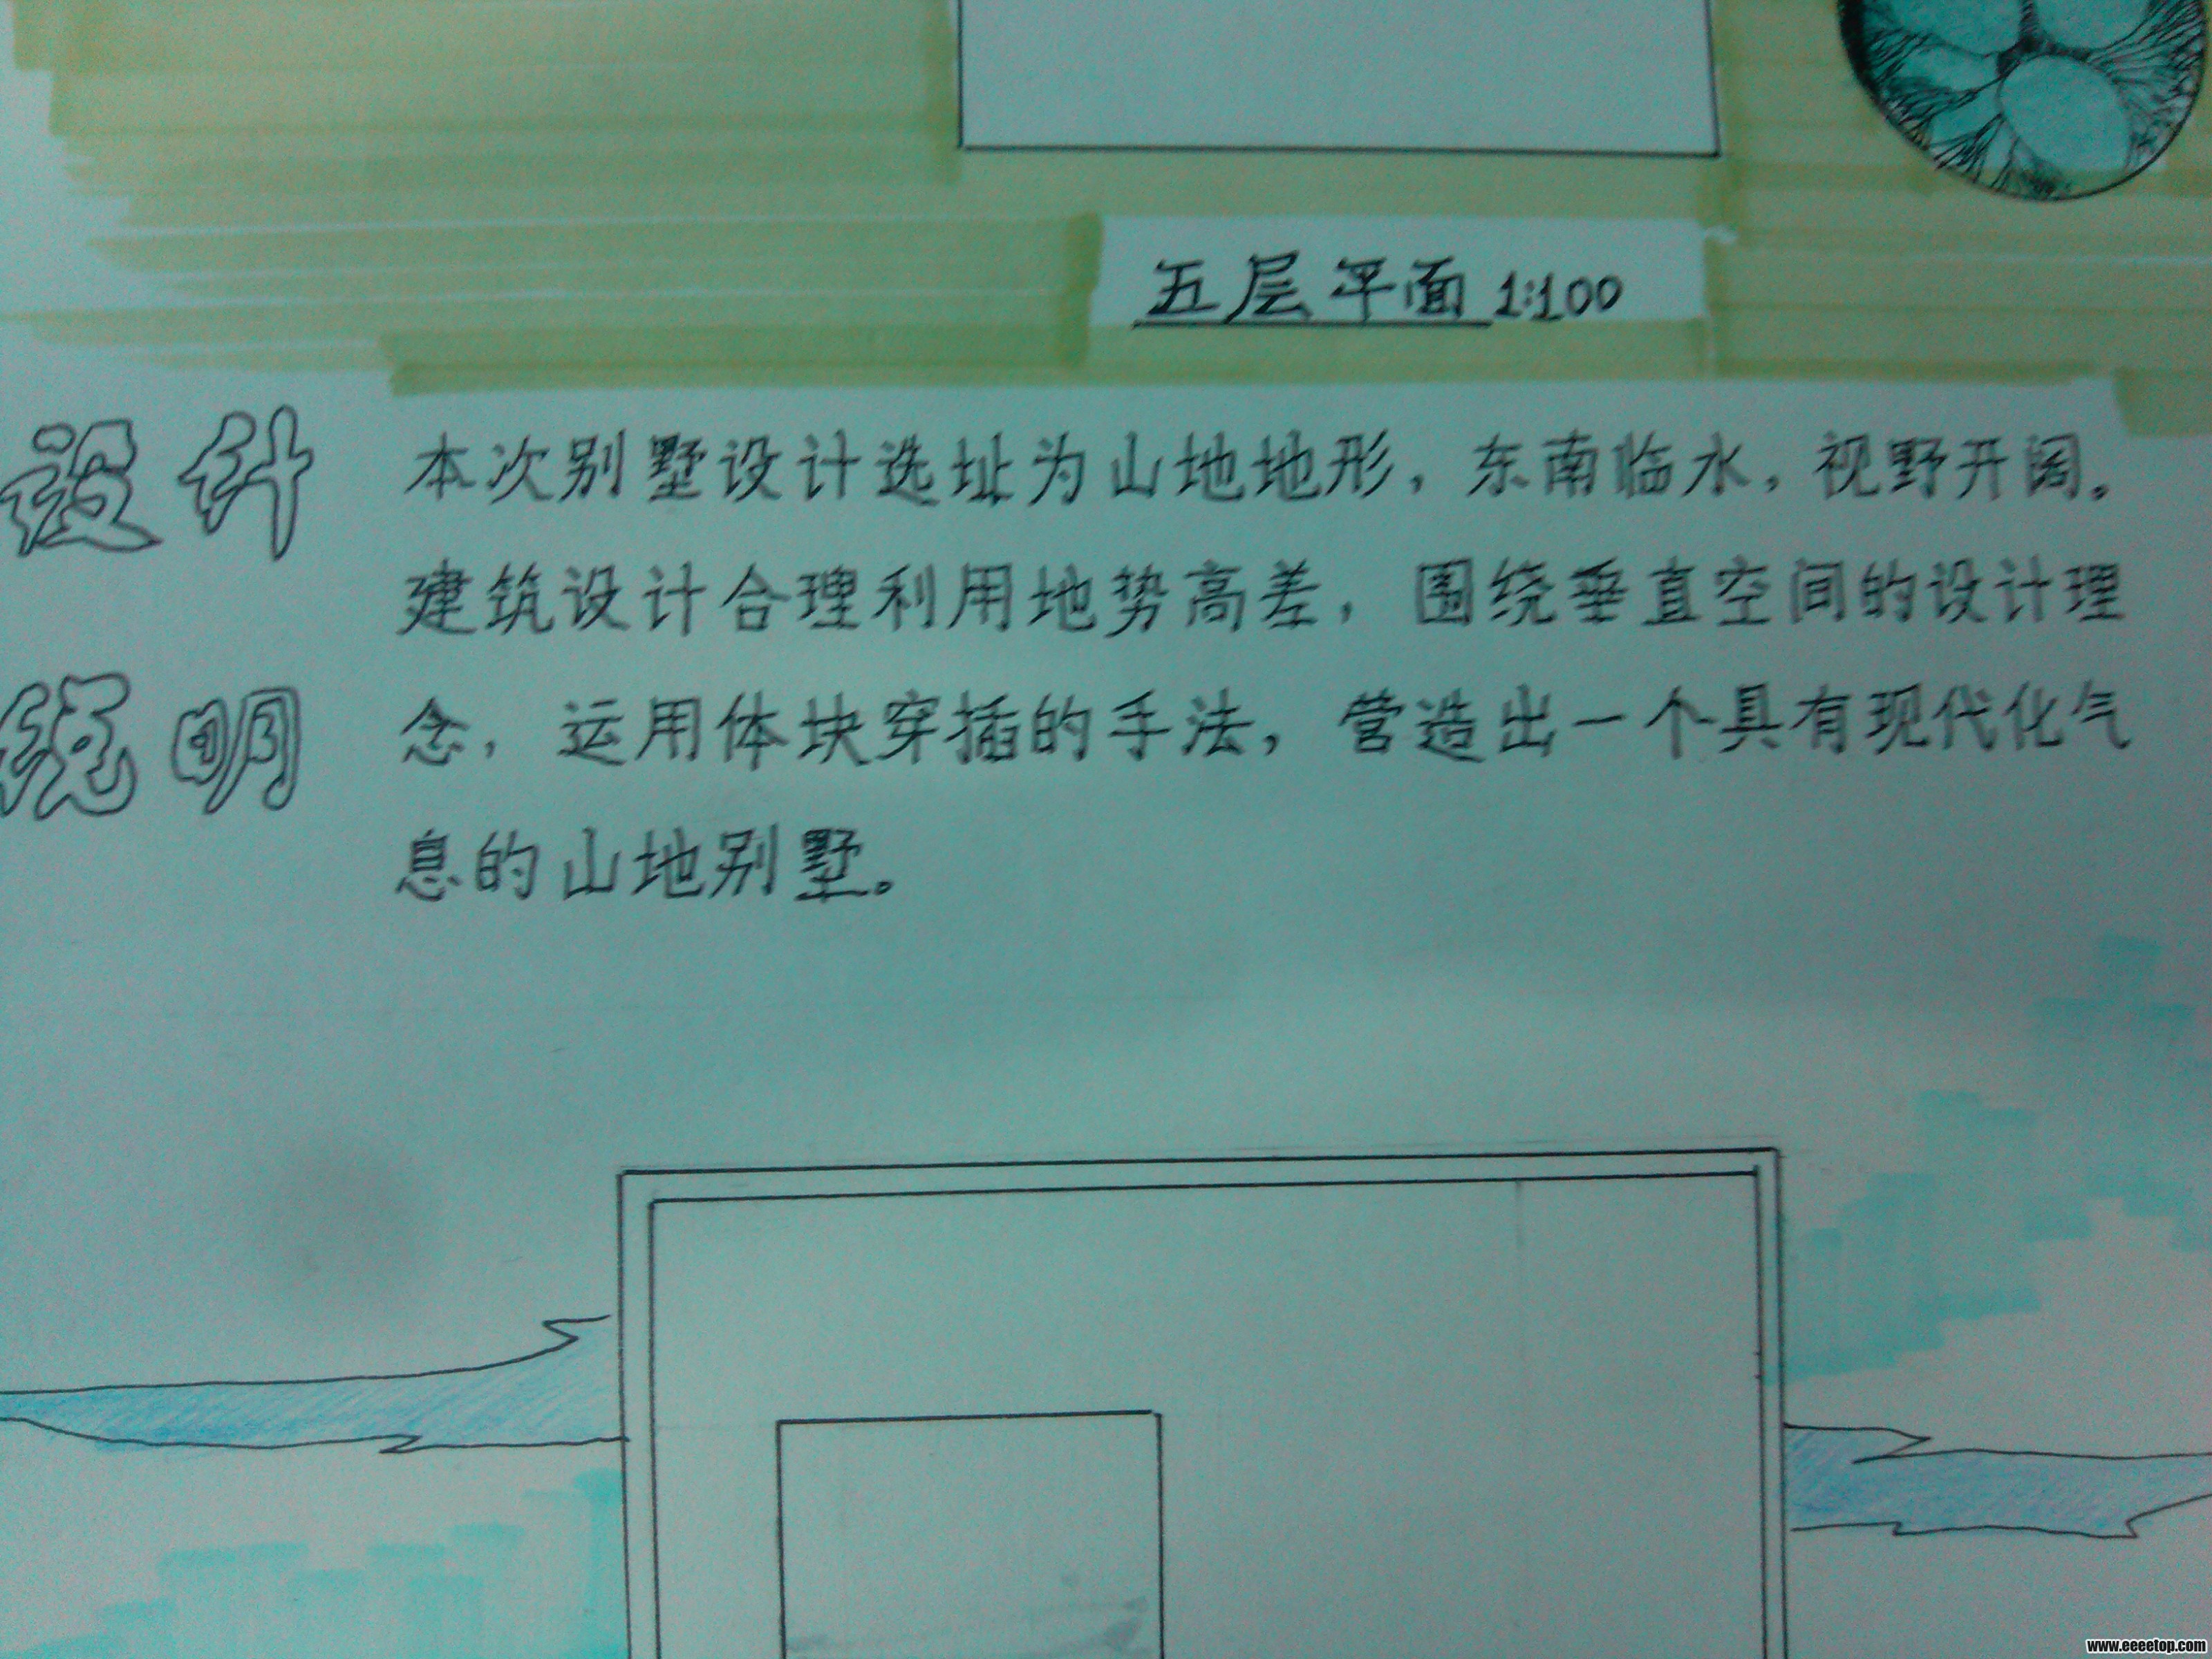 五层平面 1:100
设计
本次别墅设计选址为山地地形，东南临水，视野开阔。
建筑设计合理利用地势高差，围绕垂直空间的设计理
说明
念，运用体块穿插的手法，营造出一个具有现代化气
息的山地别墅。
www.eeeetop.com